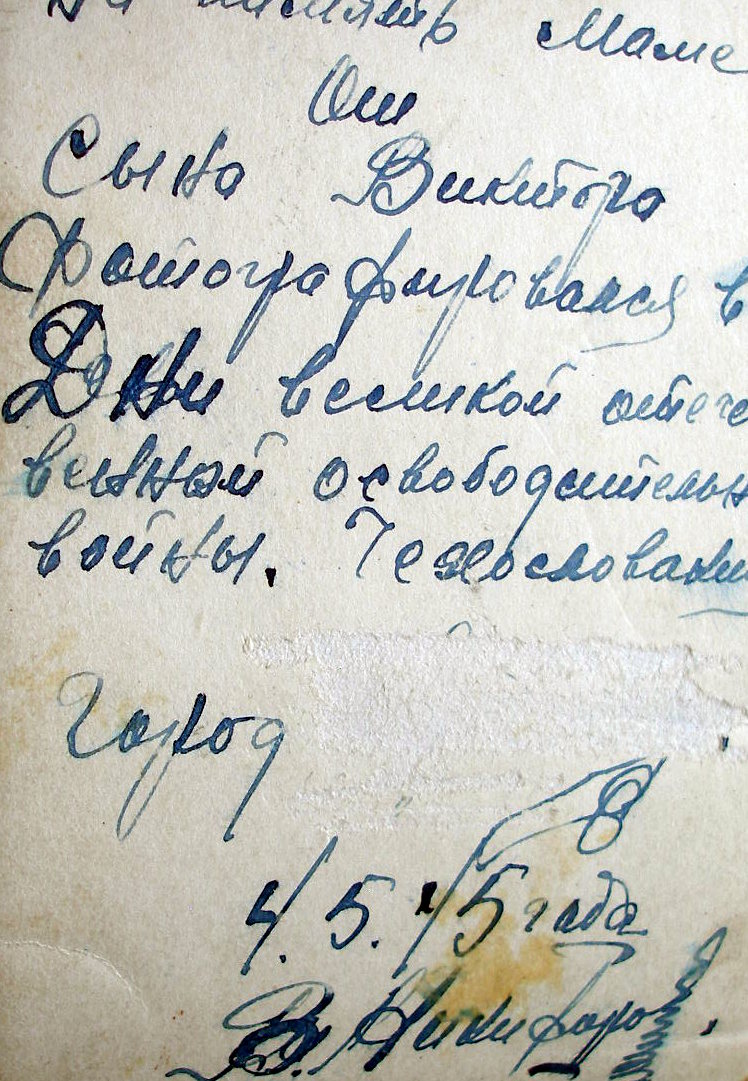 На память Маме
От
Сына Виктора
Фотографировался в
Дни великой отече
венной освободительн
войны. Чехословаки
Город
4/5.45 года
В. Никифоров.